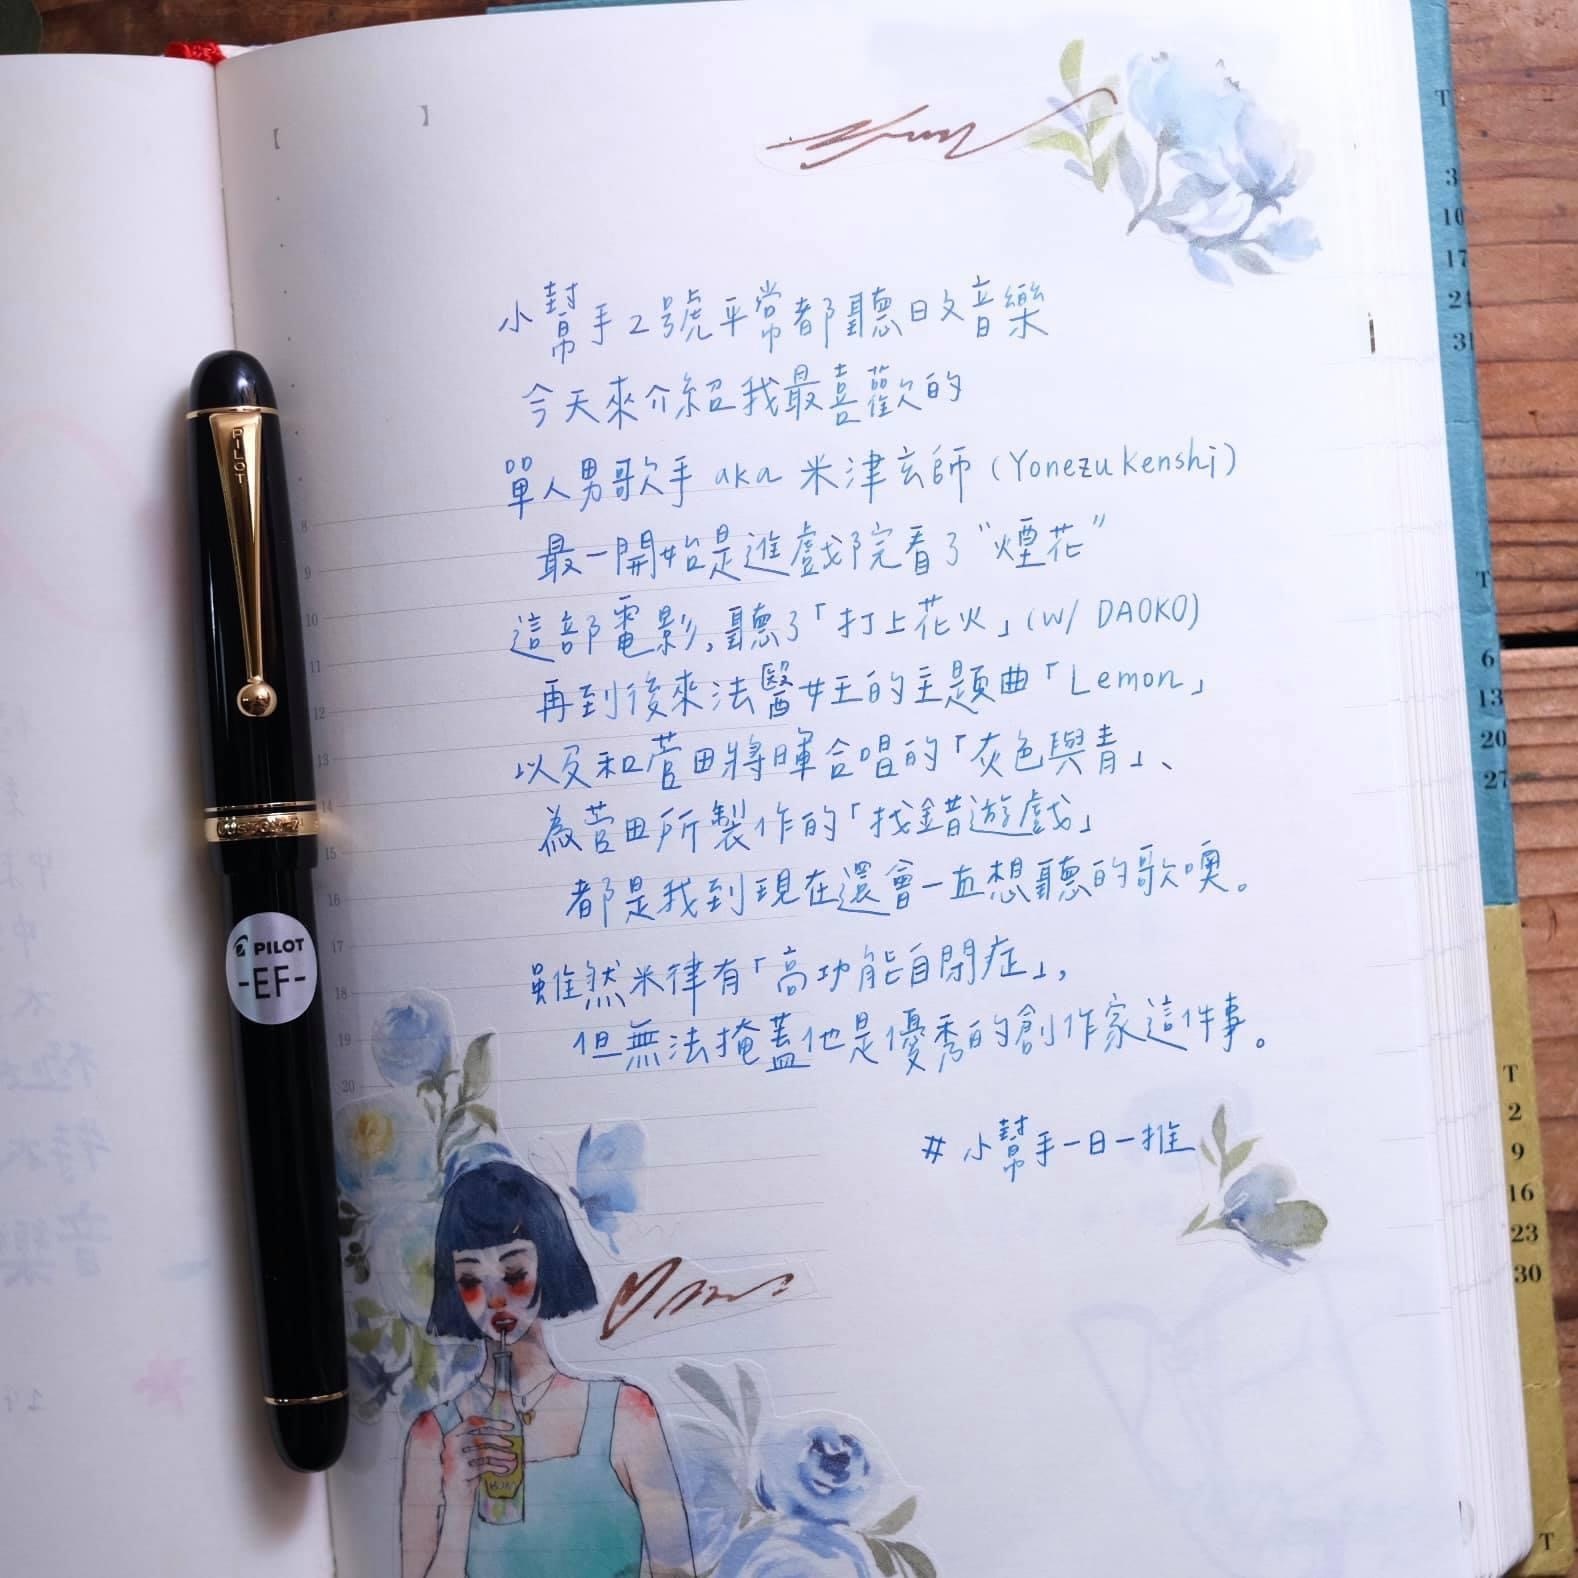 【 】
小幫手2號平常都聽日文音樂
今天來介紹我最喜歡的
單人男歌手 aka 米津玄師 (Yonezu Kenshi)
最一開始是進戲院看了"煙花"
這部電影,聽了「打上花火」(W/ DAOKO)
再到後來法醫女王的主題曲「Lemon」
以及和菅田將暉合唱的「灰色與青」、
為菅田所製作的「找錯遊戲」
都是我到現在還會一直想聽的歌噢。
雖然米律有「高功能自閉症」,
但無法掩蓋他是優秀的創作家這件事。
#小幫手一日一推
8
9
10
11
12
13
14
15
16
17
18
19
20
PILOT
PILOT
-EF-
T
3
10
17
24
31
T
6
13
20
27
T
2
9
16
23
30
T